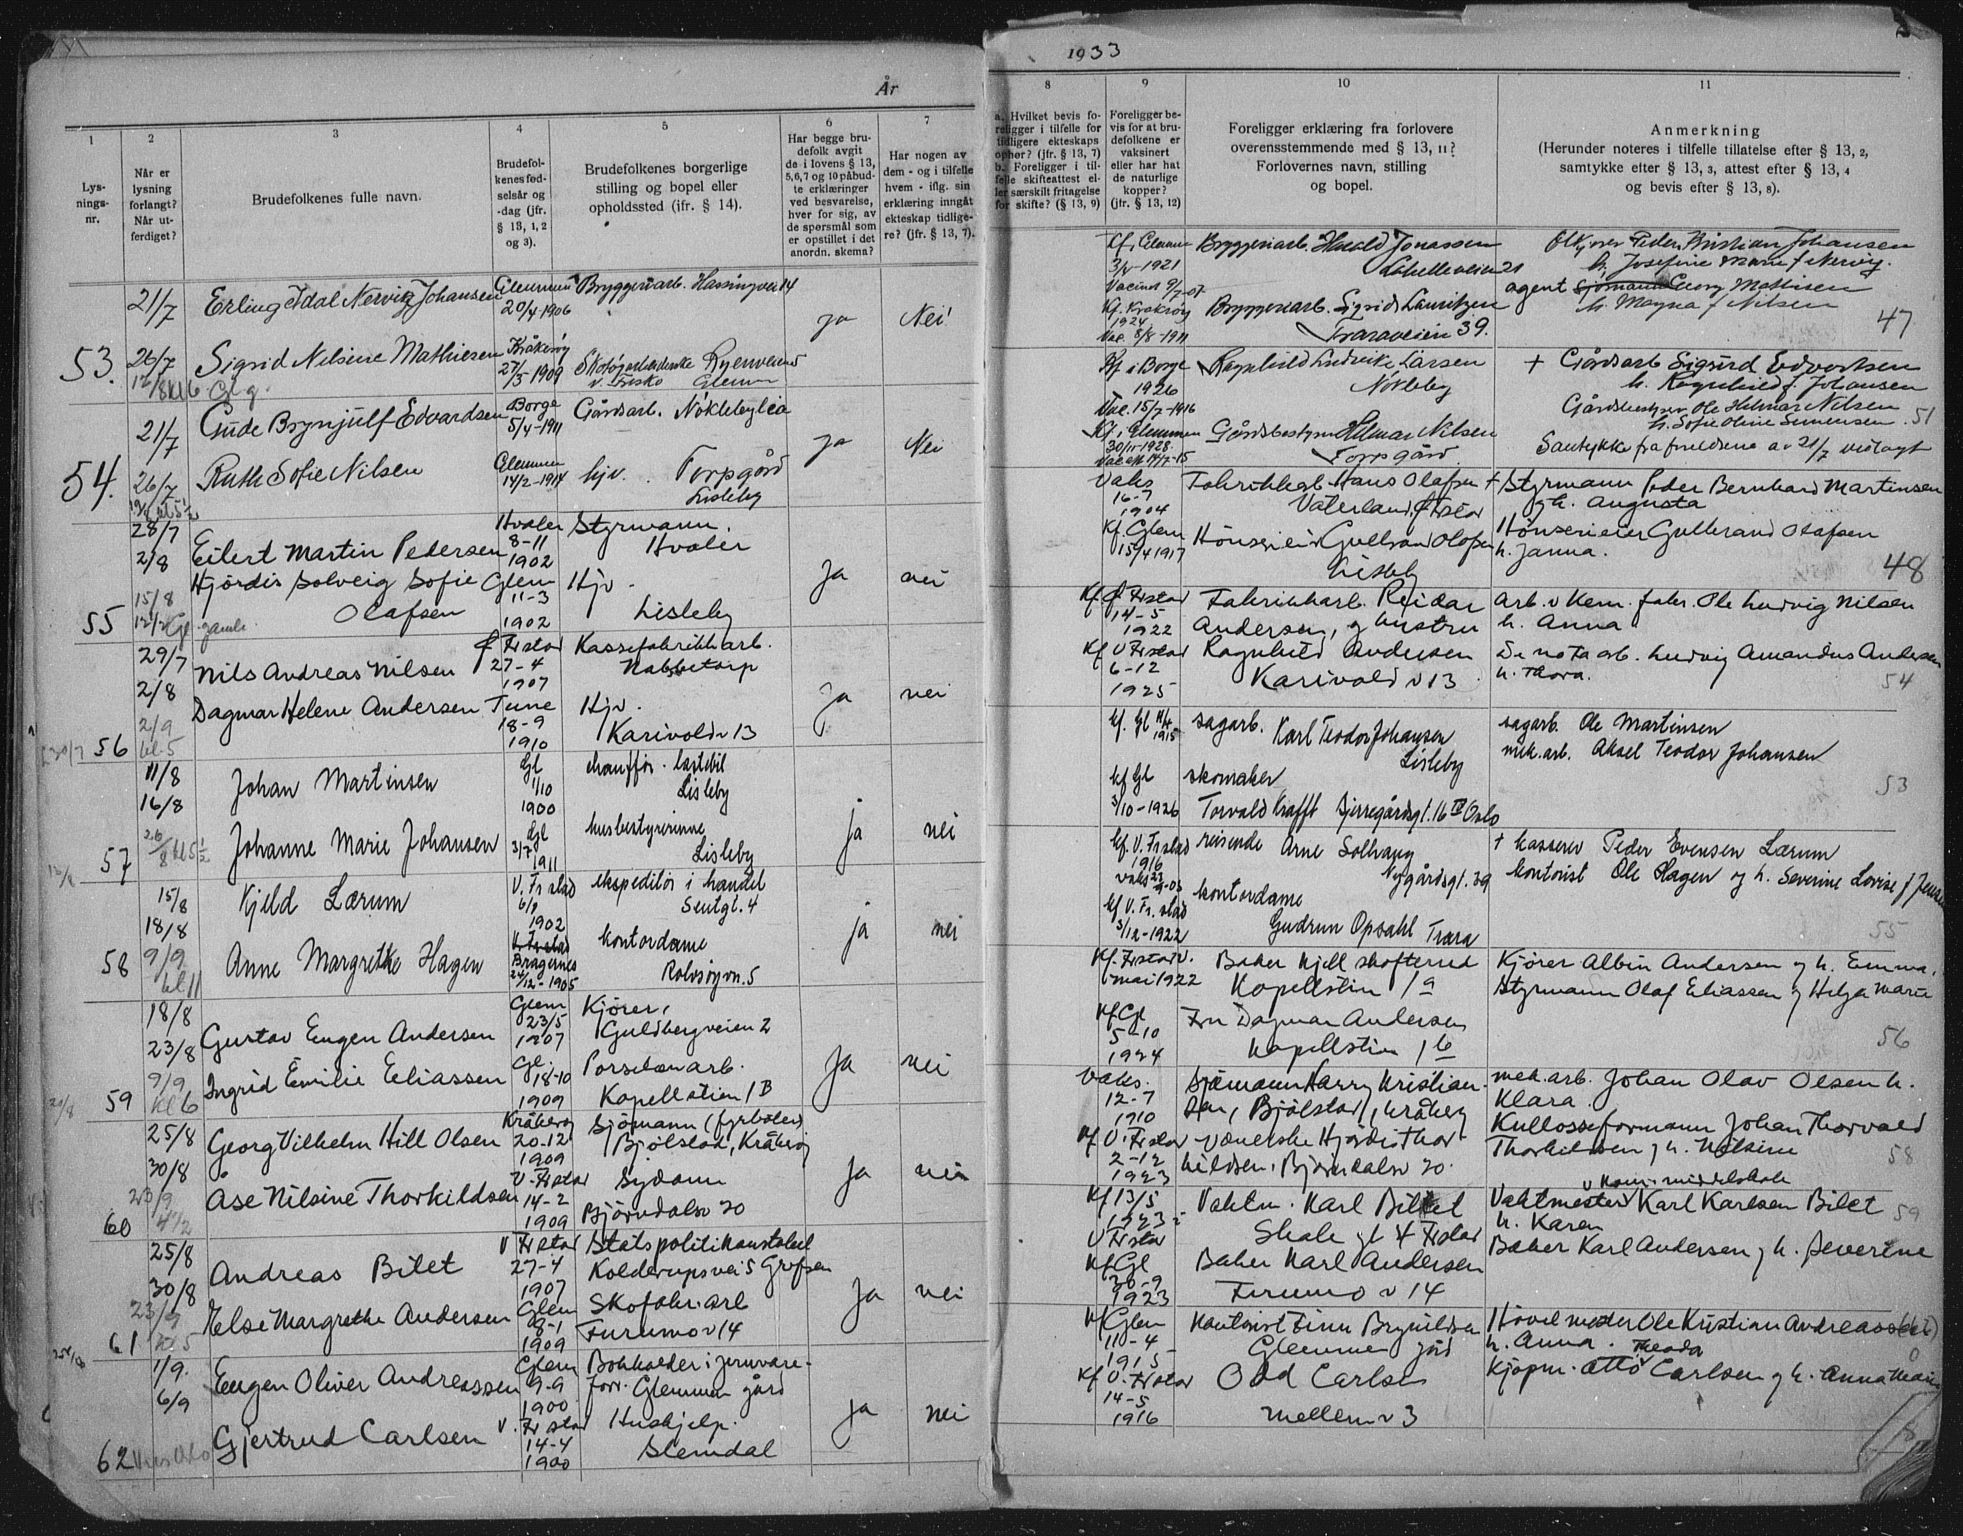 År
1933
1
2
3
4
5
6
7
Lys-
nings-
nr.
Når er
lysning
forlangt?
Når ut-
ferdiget?
Brudefolkenes fulle navn.
Brudefol-
kenes fød-
selsår og
-dag (jfr.
§ 13, 1, 2
og 3).
Brudefolkenes borgerlige
stilling og bopel eller
opholdssted (ifr. § 14).
Har begge bru-
defolk avgit
de i lovens § 13,
5,6,7 og 10 påbud-
te erklæringer
ved besvarelse,
hver for sig, av
de spørsmål som
er opstillet i det
anordn. skema?
Har nogen av
dem - og i tilfelle
hvem - iflg. sin
erklæring inngåt
ekteskap tidlige-
re? (jfr. § 13, 7).
21/7 Erling Idal Nervig Johansen Glemmen 20/4-1906 Bryggeriarb. Hassingvei 14
ja Nei
53. 26/7 Sigrid Nilsine Mathiesen Kråkerøy 27/5 1909
v. Frisko Glemm
12/8 kl 6
21/7 Gude Brynjulf Edvardsen Borge 5/4-1911 Gårdsarb. Nøklebylia
ja Nei
54. 26/7 Ruth Sofie Nilsen Glemmen 14/2-1914 hjv. Torpgård
Lisleby
28/7
2/8 Eilert Martin Pedersen Hvaler 8-11 1902 Styrmann.
Hvaler
ja nei
15/8 Hjördis Solveig Sofie Glem 11-3 1902 Hjv.
55 Olafsen Lisleby
29/7 Nils Andreas Nilsen Frstad 27-4 1907 Kassefabrikkarb.
Nabbetorp
2/8 ja nei
Dagmar Helene Andersen Tune 18-9 1910 Hjv.
56 2/9 kl. 5 Karivold v 13
11/8 Johan Martinsen Gl 1/10 1900 chauffør. lastebil
16/8 Lisleby
ja nei
57 26/8 kl 5 1/2 Johanne Marie Johansen Gl 3/7 1911 husbestyrerinne
Lisleby
15/8 Kjeld Lærum V. Fr.stad 6/8 1902 ekspeditør i handel
18/8 ja nei
58 9/9 kl 11 Anne Margrethe Hagen V. Frstad Bragernes 24/12-1905 kontordame
Rolvsøyvn. 5
18/8 Gustav Eugen Andersen Glem 23/5 1907 Kjører,
23/8 Guldbergveien 2
ja nei
59 9/9 kl 6 Ingrid Emilie Eliassen Gl. 18-10 1909 Porselænarb.
Kapellstien 1 B
25/8 Georg Vilhelm Hill Olsen Kråkerøy 20-12 1909 Sjømann (fyrbøter)
30/8 Bjølstad, Kråkerøy
ja nei
60 23/9 Åse Nilsine Thorkildsen V. Frstad 14-2 1909 Sydame
Bjørndalsv 20
25/8 Andreas Bilet V Frstad 27-4 1907 Statspolitikonstabel
30/8 Kolderupsvei 5 Grefsen
ja nei
61 23/9 kl 5 Else Margrethe Andersen Glem 8-1 1909 Skofabr. arb
Furumov 14
1/9. Eugen Oliver Andreassen Glem 9-9 1900 Bokholder i jernvare-
6/9 forr. Glemmen gård
ja nei
62 Gjertrud Carlsen V. Frstad 14-4 1900 Hushjelp.
Slemdal
8
9
10
11
a. Hvilket bevis fo-
religger i tilfelle for
tidligere ekteskaps
ophør? (jfr. § 13, 7)
b. Foreligger i til-
felle skifteattest el-
ler særskilt fritagelse
for skifte? (§ 13, 9)
Foreligger be-
vis for at bru-
defolkene er
vaksinert
eller har hat
de naturlige
kopper?
(jfr. § 13, 12)
Foreligger erklæring fra forlovere
overensstemmende med § 13, 11?
Forlovernes navn, stilling
og bopel.
Anmerkning
(Herunder noteres i tilfelle tillatelse efter § 13, 2,
samtykke efter § 13, 3, attest efter § 13, 4
og bevis efter § 13, 8).
Kf. Glemmen Bryggeriarb. Harald Jonassen Peder Kristian Johansen
1921 h. Josefine Marie f Nervig.
agent Sjømann Georg Mathisen
Kf. Kråkerøy 1924 Bryggeriarb. Sigrid Lauritzen h. Magna f Nilsen
Vac. 8/8-1911 Traraveien 39. 47
Kf i Borge 1926 Ragnhild Ludvike Larsen + Gårdsarb Sigurd Edvardsen
Nøkleby h. Ragnhild f. Johansen
Vac. 15/7-1916 Gårdsbestyrer Ole Hilmar Nilsen
h. Sofie Oline Simensen. 51
Kf. i Glemmen 30/11-1928. Gårdsbestyrer Hilmar Nilsen
Torpgård. Samtykke fra foreldrene av 21/7 vedlagt
Vaks 16-7 1904 Fabrikkarb. Hans Olafsen + Styrmann Peder Bernhard Martinsen
Vaterland, Frstad og h. Augusta
Kf. Glem 15/4 1917 Hønserieier Gulbrand Olafsen Hønserieier Gulbrand Olafsen
Lisleby h. Janna. 48
Kf Frstad 14-5 1922 Fabrikkarb. Reidar arb. v kem. fabr. Ole Ludvig Nilsen
Andersen, og hustru h. Anna
Kf V Frstad 6-12 1925 Ragnhild Andersen De no Fa arb. Ludvig Amandus Andersen
Karivold v 13 h. Thora. 54
kf. Gl 1915 sagarb. Karl Teodor Johansen sagarb. Ole Martinsen
Lisleby mek. arb. Aksel Teodor Johansen
kf Gl 3/10-1926 skomaker
Torvald Krafft Bjerregårdsgt. 16 IV Oslo 53
kf. V. Fr.stad 1916 reisende Arne Solhaug + kasserer Peder Evensen Lærum
Nygårdsgt. 39 kontorist Ole Hagen og h. Severine Lovise f Jensen
kf V. Fr. stad 3/12-1922 kontordame
Gudrun Opsahl Trara 55
Kf. Frstad v. mai 1922 Baker Kjell Skofterud Kjører Albin Andersen og h. Emma.
Kapellstien 1 a Styrmann Olaf Eliassen og Helga Marie
Kf Gl 5-10 1924 Fru Dagmar Andersen
Kapellstien 1 b 56
Vaks. 12-7 1910 Sjømann Harry Kristian- mek. arb. Johan Olav Olsen h.
sen, Bjølstad, Kråkerøy Klara
Kf V. Frstad 2-12 1923 Værnelske Hjördis Thor- Kullosseformann Johan Thorvald
kildsen, Bjørndalsv 20. Thorkildsen og h. Nilsine 58
v kom. middelskole
Kf 13/5 1923 V Frstad Vaktm. Karl Billet Vaktmester Karl Karlsen Bilet
Skole gt 4 Frstad h. Karen 59
Kf Gl 30-9 1923 Baker Karl Andersen Baker Karl Andersen og h. Severine
Furumo v 14
Kf Glem 10-4 1915 Kontorist Finn Brynildsen Høvelmester Ole Kristian Andreassen
Glemmen gård h. Anna.
Theodor
Kf V. Frstad 14-5 1916 Odd Carlsen Kjøpm. Otto Carlsen og h. Anna Marie
Mellemv 3